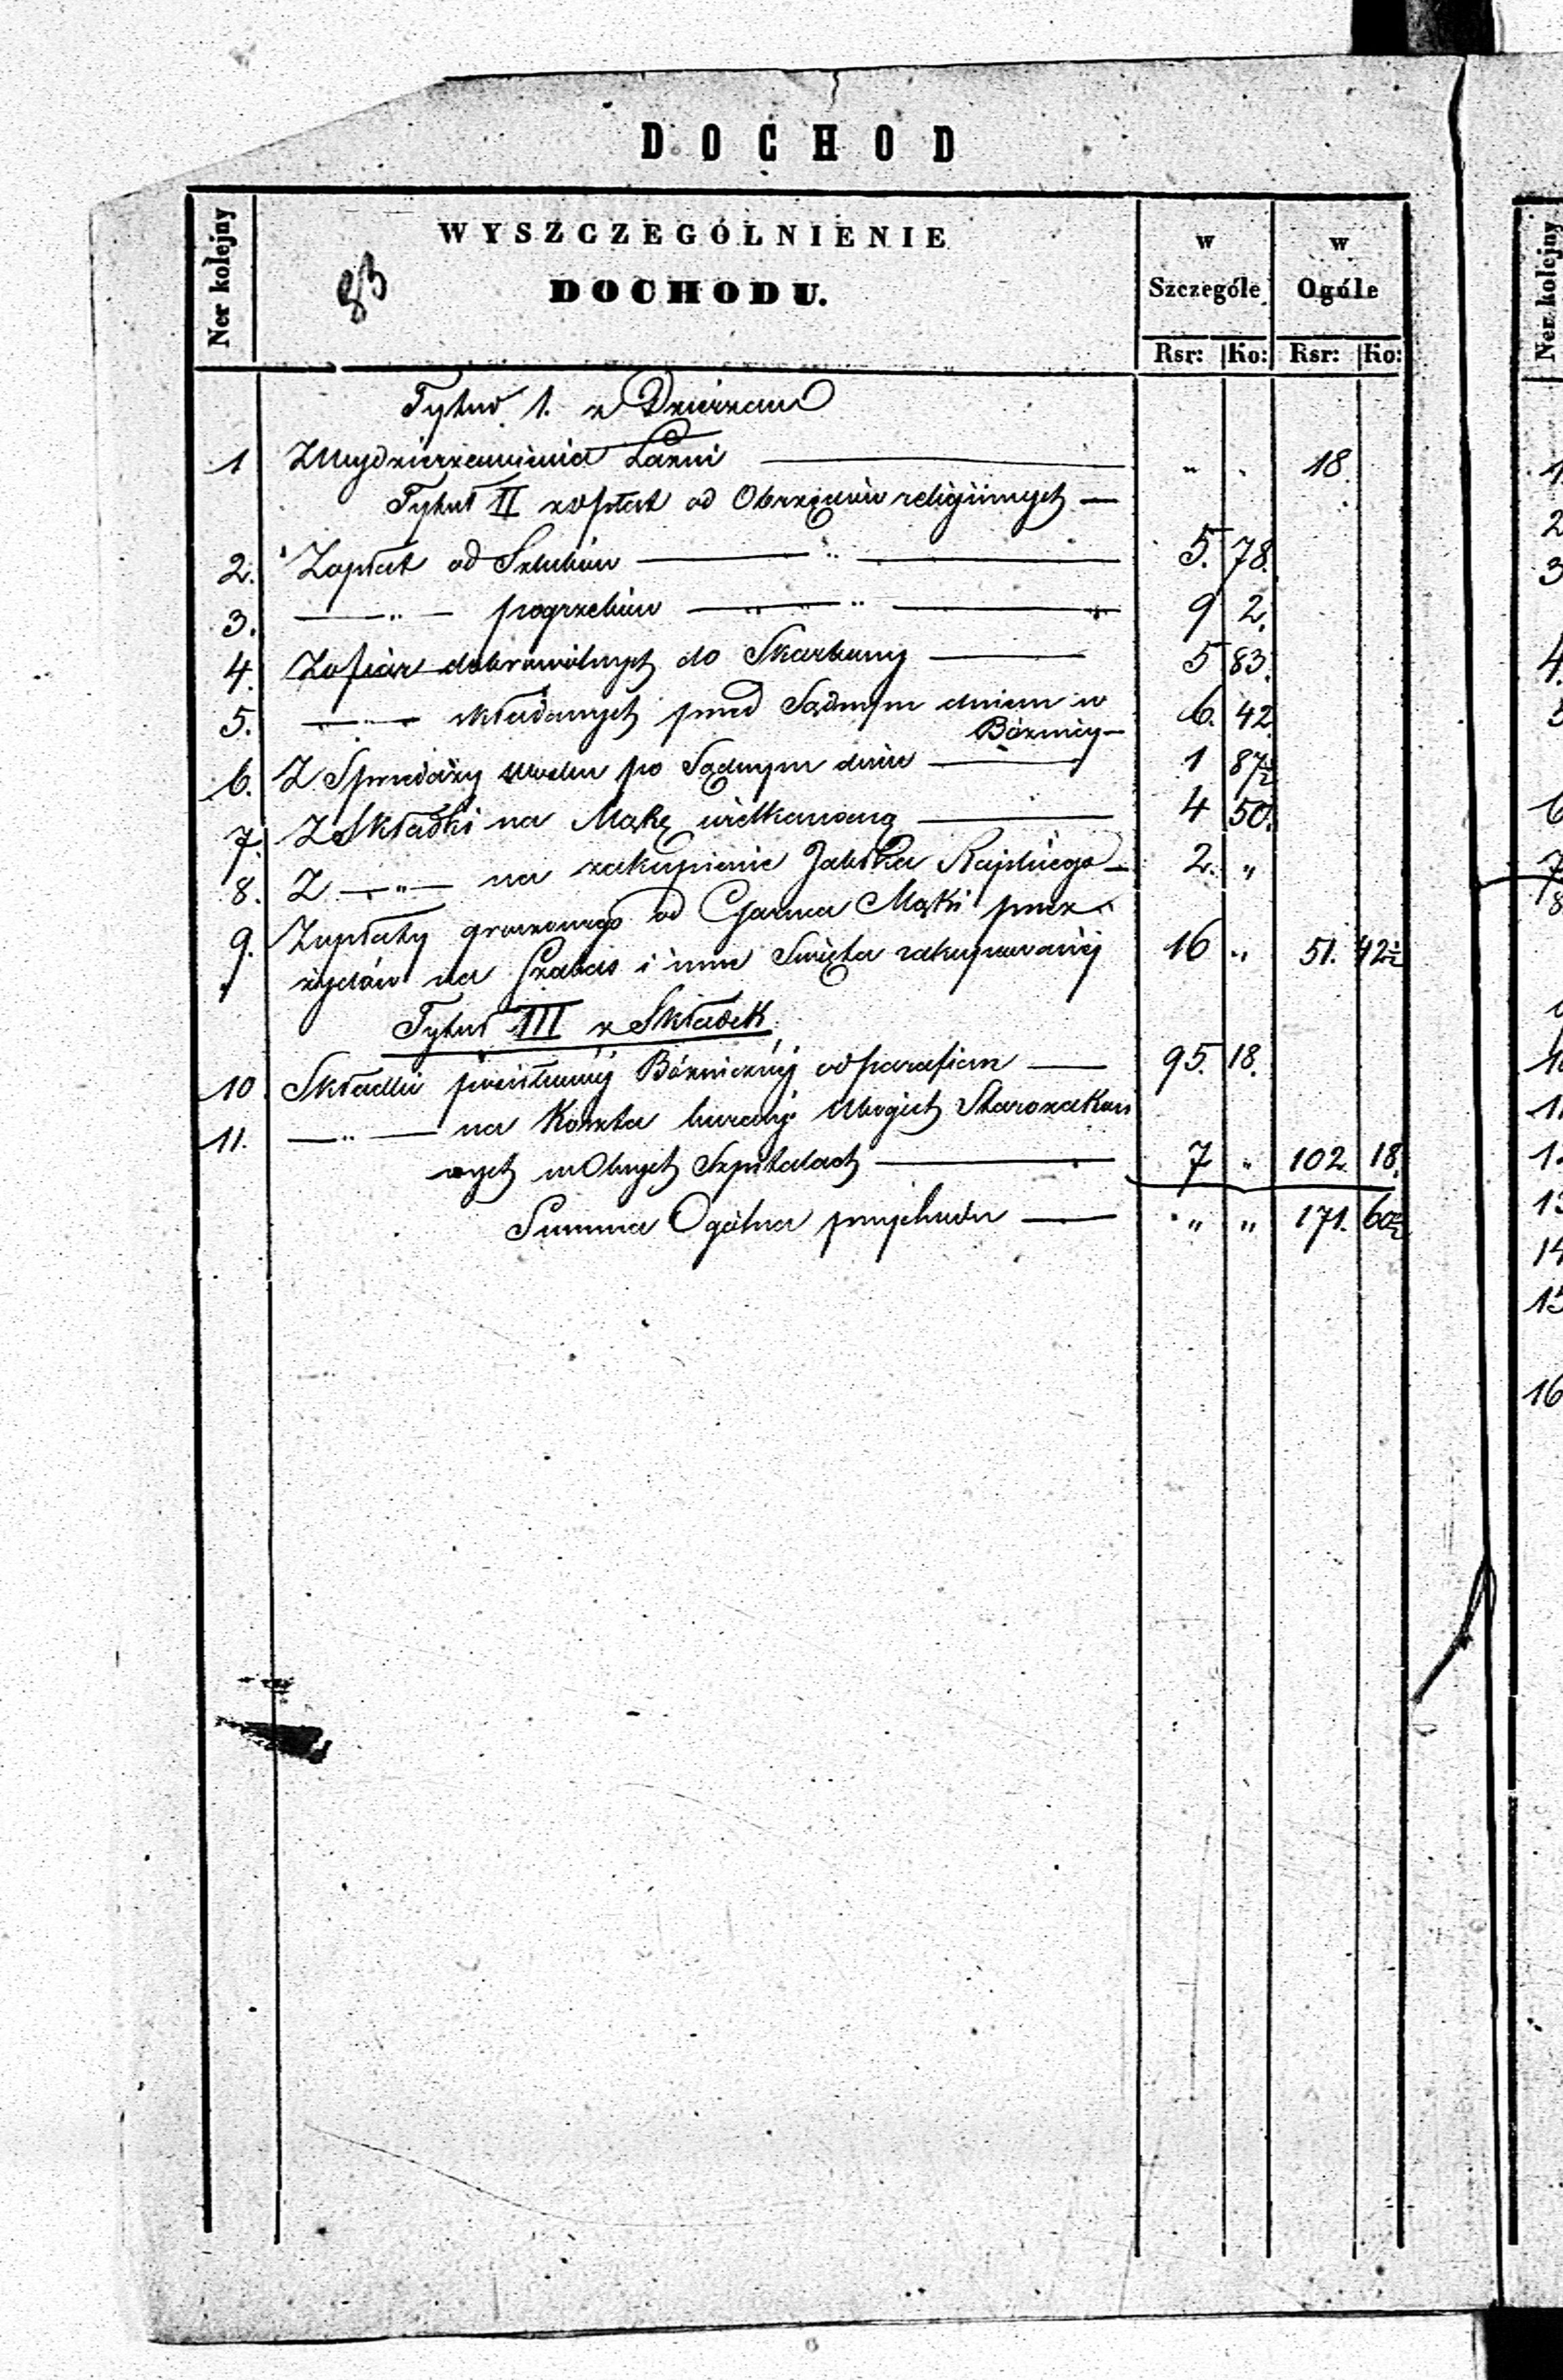 DOCHOD
Ner kolejny
WYSZCZEGÓLNIENIE
DOCHODU.
w Szczególe
w Ogóle
Rsr: Ko: Rsr: Ko:
83
Tytuł 1. z Dzierżaw
1 Z Wydzierżawienia Łaźni — „ „ 18
Tytuł II z opłat od Obrzędów religijnych —
2. Z opłat od Szlubów — „ — 5. 78.
3. — „ — pogrzebów — „ — „ — 9 2.
4. Z ofiar dobrowolnych do Skarbony — 5 83.
5. — „ — składanych przed Sądnym dniem w
Bóżnicy — 6. 42
6. Z Sprzedaży Miodu po Sądnym dniu — 1 87½
7. Z Składki na Mąkę wielkanocną — 4 50.
8. Z — „ — na zakupienie Jabłka Rajskiego — 2. „
9. Z opłaty groszowego od Garnca Mąki przez
żydów na Szabas i inne Święta zakupowanéj 16 „ 51. 42½
Tytuł III z Składek
10 Składki Bóżnicznéj od parafian — 95. 18.
11. — „ — na Koszta kuracyi Ubogich Starozakon
nych w Szpitalach — 7 „ 102 18.
Summa Ogólna przychodu — „ „ 171. 60½
Ner kolejny